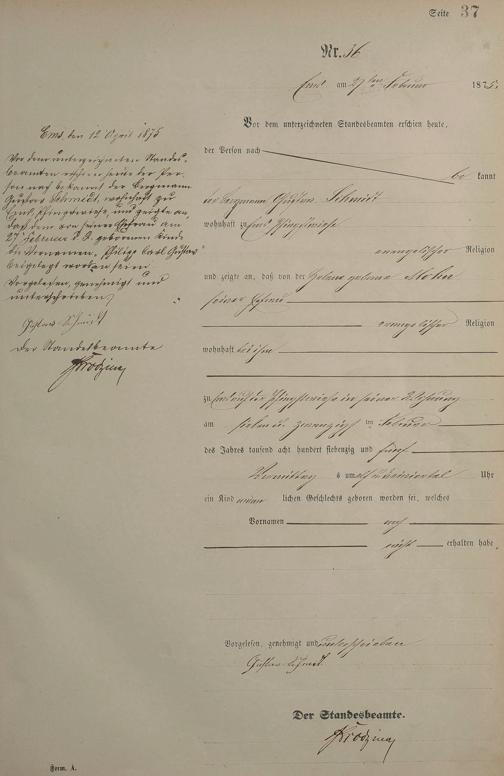 Seite 37
Nr. 36
Ems am 27ten Februar 1875.
Vor dem unterzeichneten Standesbeamten erschien heute,
der Person nach
be kannt
der Bergmann Gustav Schmidt
wohnhaft zu Ems Pfingstwiese
evangelischer Religion
und zeigte an, daß von der Helena geborene
seiner Ehefrau
evangelischer Religion
wohnhaft bei ihm
zu Ems auf der Pfingstwiese in seiner Wohnung
am sieben und zwanzigsten Februar
des Jahres tausend acht hundert siebenzig und fünf
Vormittag s um Uhr
ein Kind männ lichen Geschlechts geboren worden sei, welches
Vornamen noch
nicht erhalten habe.
Vorgelesen, genehmigt und unterschrieben
Gustav Schmidt
Der Standesbeamte.
Form. A.
Ems, den 12 April 1875
Vor dem unterzeichneten Standes-
beamten erschien heute der Per-
son nach bekannt der Bergmann
Gustav Schmidt, wohnhaft zu
Ems Pfingstwiese, und zeigte an,
daß dem von seiner Ehefrau am
27 Februar d. J. geborenen Kinde
die Vornamen „Philipp Carl Gustav"
beigelegt worden seien
Vorgelesen, genehmigt und
unterschrieben
Gustav Schmidt
Der Standesbeamte